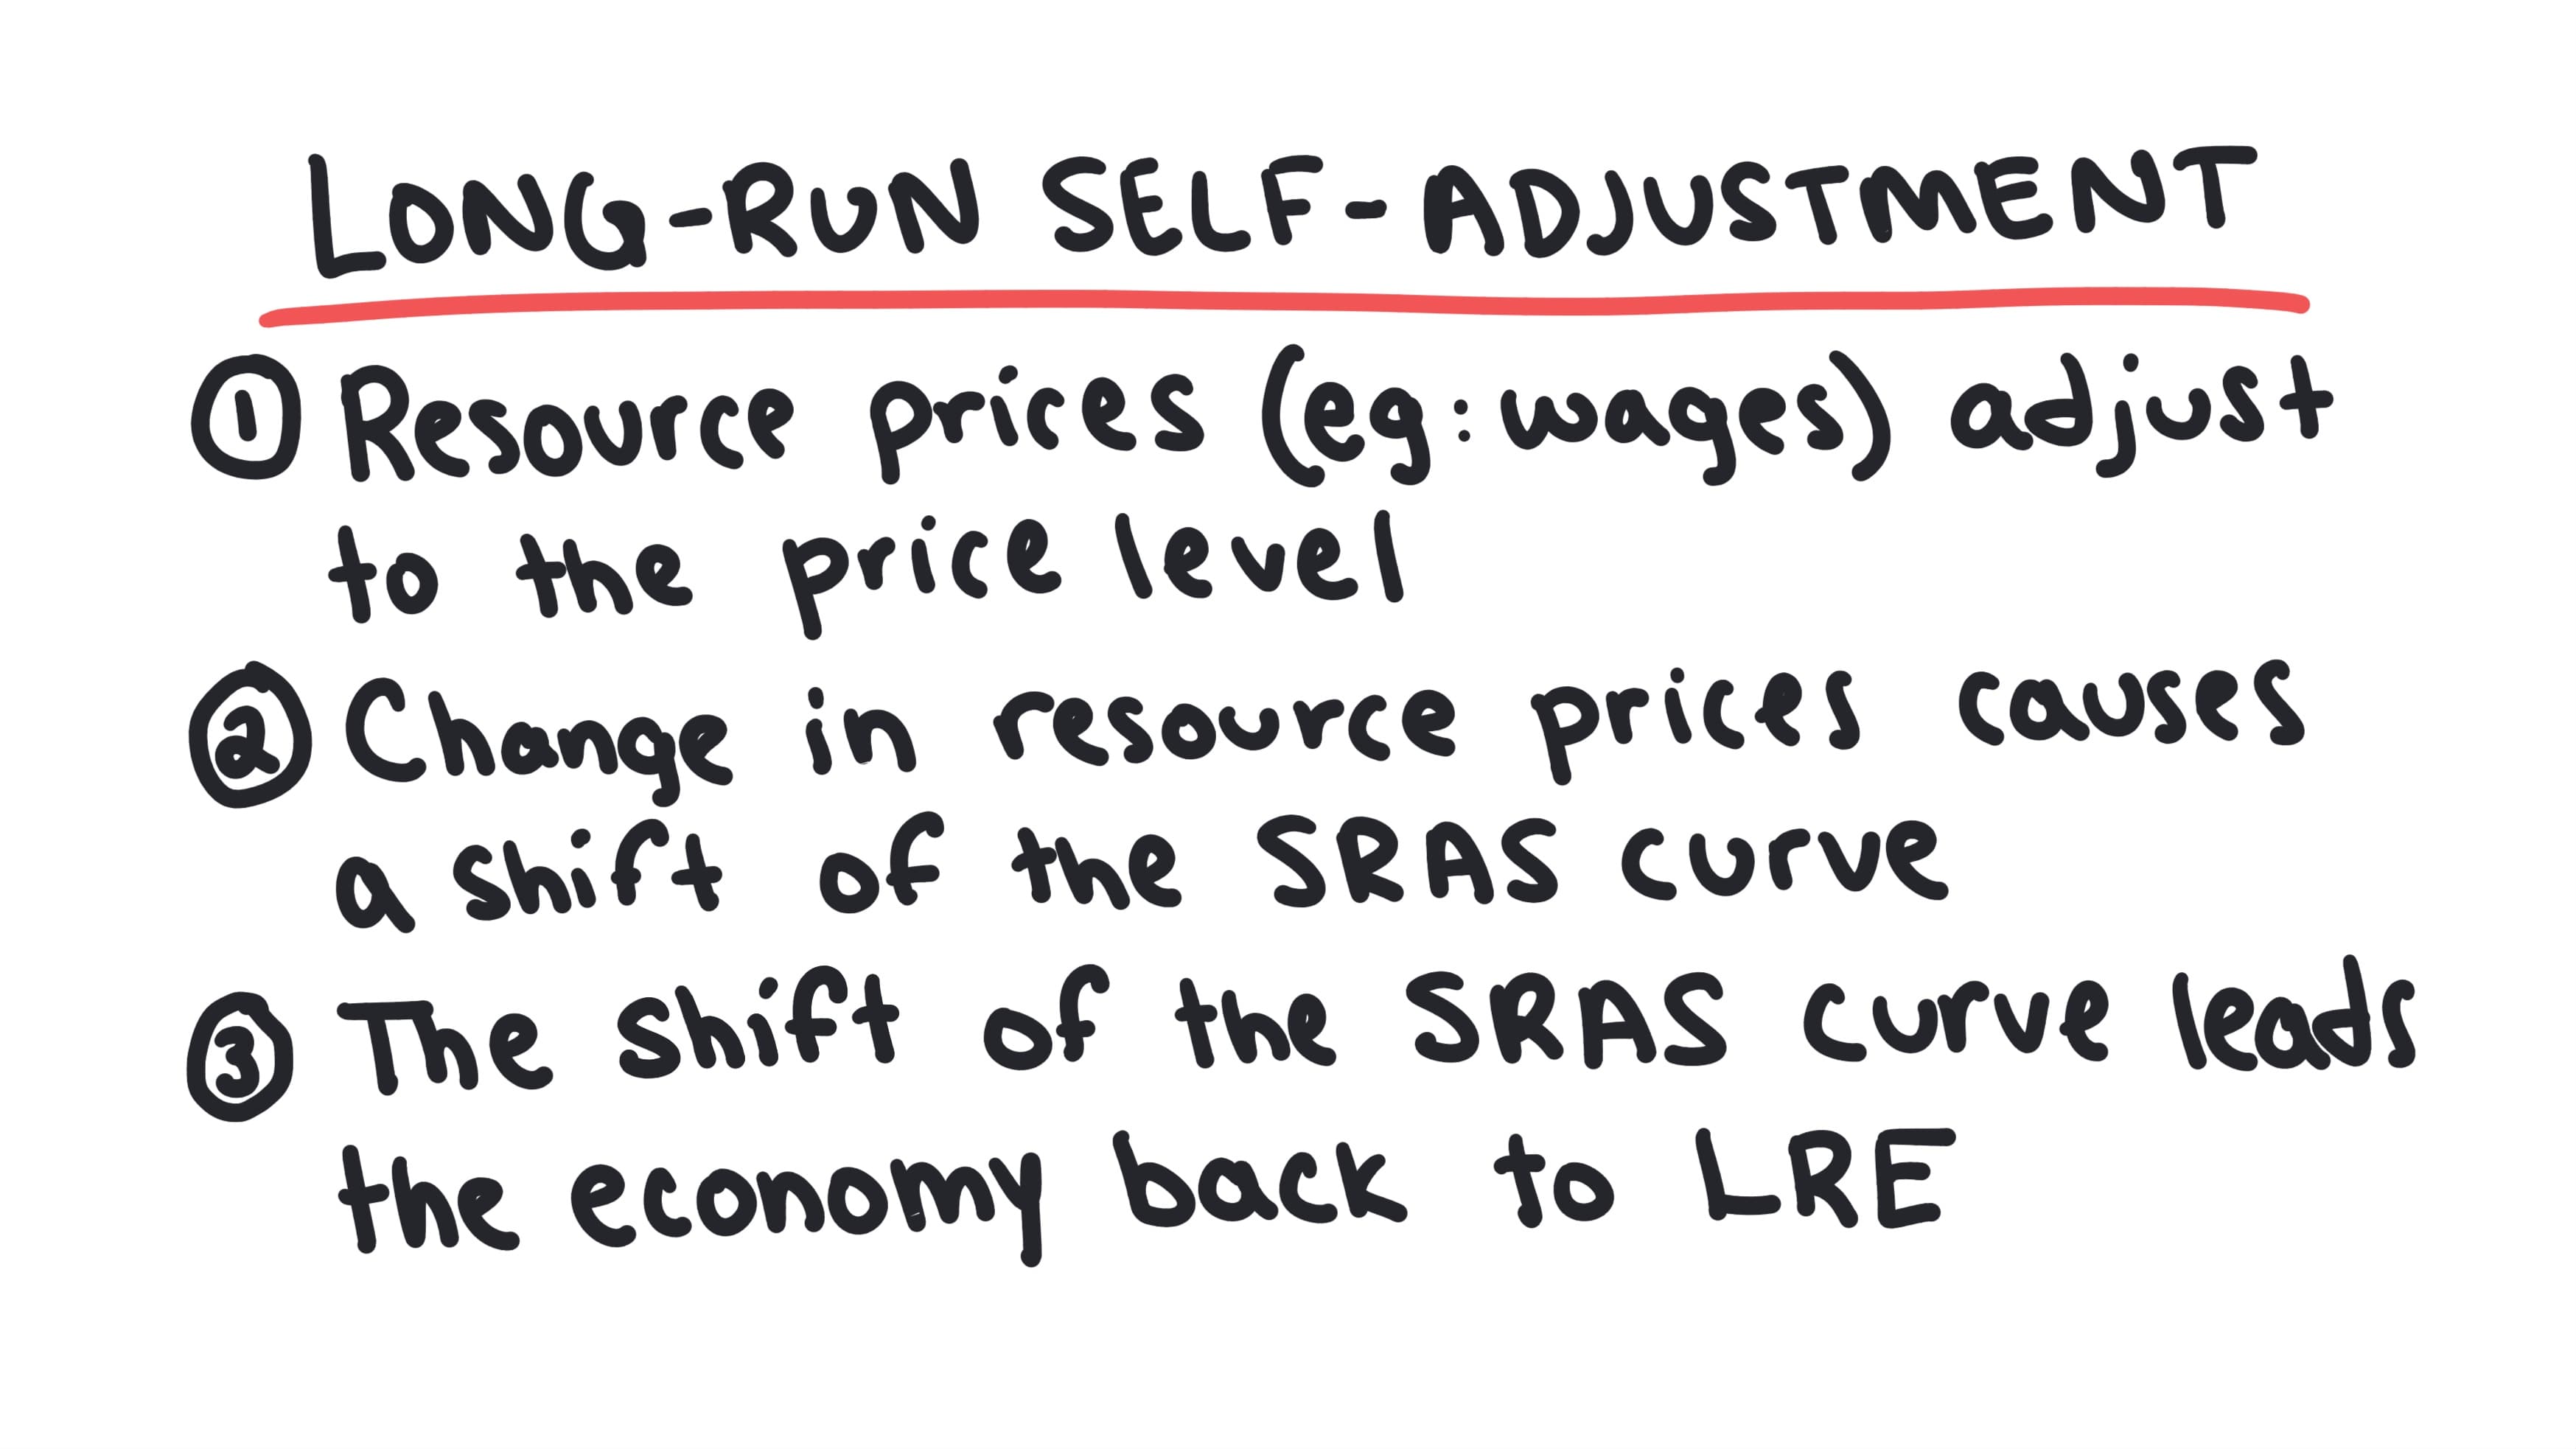 LONG-RUN SELF-ADJUSTMENT
① Resource prices (eg: wages) adjust
to the price level
② Change in resource prices causes
a shift of the SRAS curve
③ The shift of the SRAS curve leads
the economy back to LRE